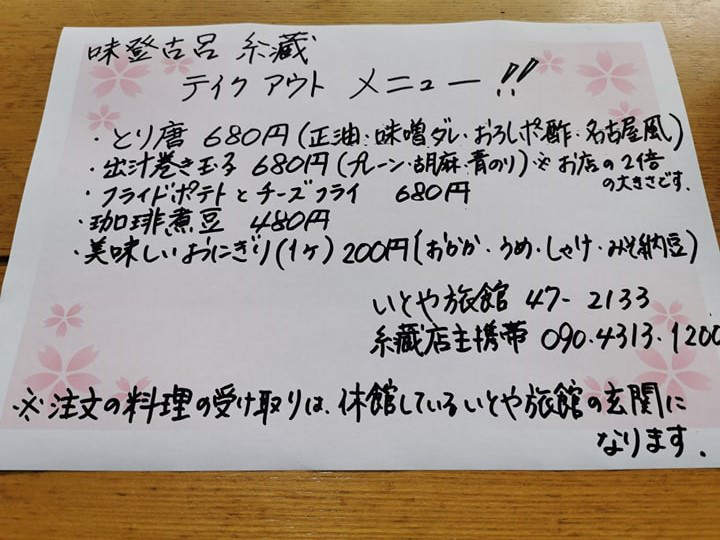 味登古呂 糸蔵
テイクアウト メニュー!!
・とり唐 680円(正油・味噌ダレ・おろしポン酢・名古屋風)
・出汁巻き玉子 680円(プレーン・胡麻・青のり)※お店の2倍の大きさです.
・フライドポテトとチーズフライ 680円
・珈琲煮豆 480円
・美味しいおにぎり(1ヶ)200円(おかか・うめ・しゃけ・みそ納豆)
いとや旅館 47-2133
糸蔵店主携帯 090.4313.1200
※注文の料理の受け取りは、休館しているいとや旅館の玄関に
なります.